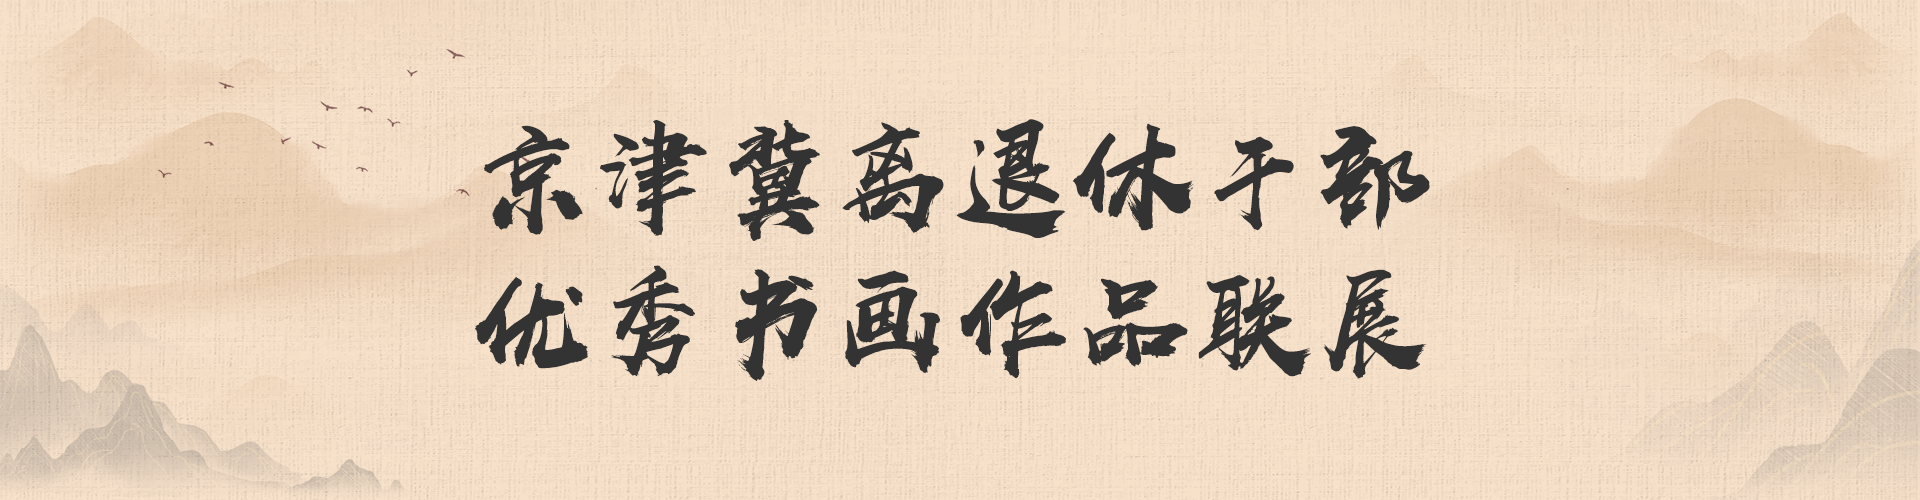 京津冀离退休干部
优秀书画作品联展